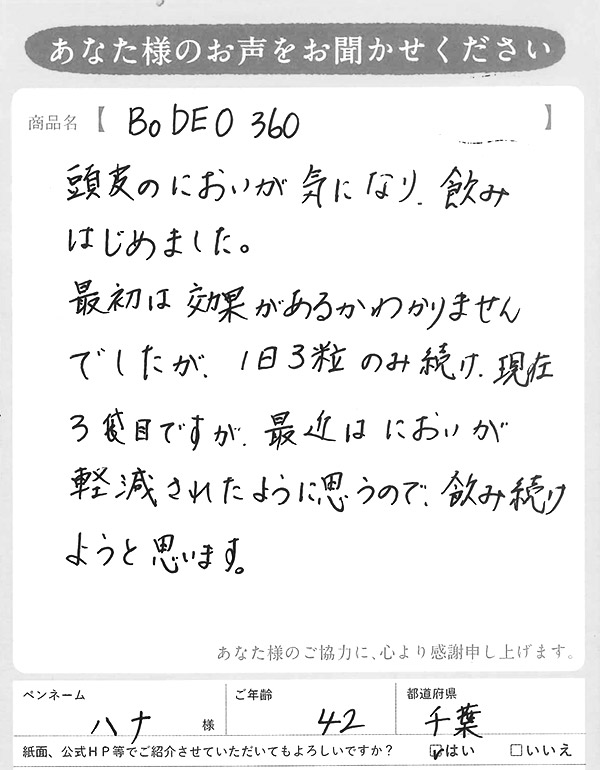 あなた様のお声をお聞かせください
商品名【 BoDEO 360 】
頭皮のにおいが気になり、飲み
はじめました。
最初は効果があるかわかりません
でしたが、1日3粒のみ続け、現在
3袋目ですが、最近はにおいが
軽減されたように思うので、飲み続け
ようと思います。
あなた様のご協力に、心より感謝申し上げます。
ペンネーム ハナ 様 ご年齢 42 都道府県 千葉
紙面、公式HP等でご紹介させていただいてもよろしいですか? ☑はい □いいえ